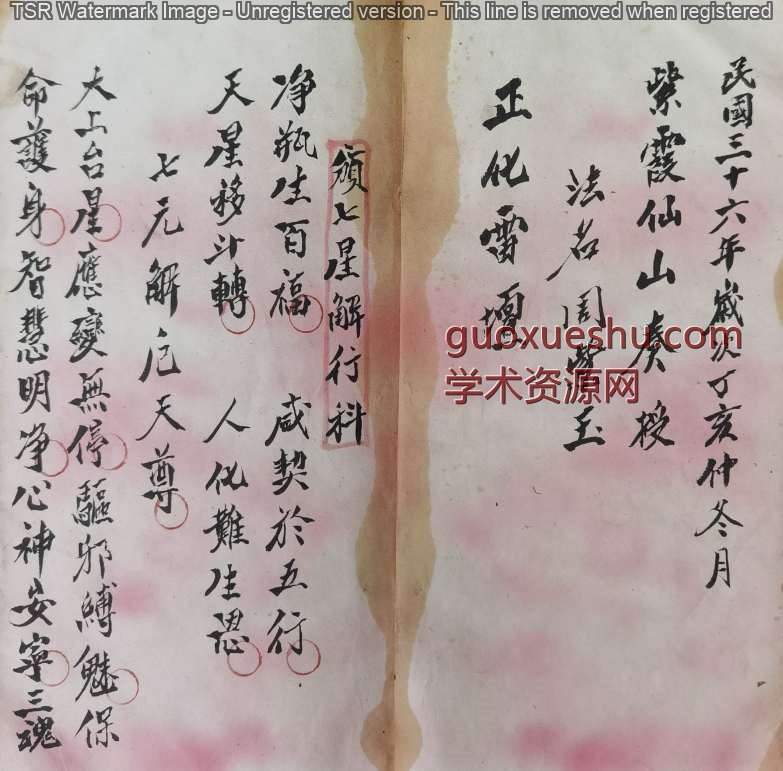 TSR Watermark Image - Unregistered version - This line is removed when registered
民國三十六年歲次丁亥仲冬月
紫霞仙山奏授
法名周 玉
正化雷壇
頒七星解行科
净瓶生百福 咸契於五行
天星移斗轉 人化難生恩
七元解厄天尊
太上台星應變無停驅邪縛魅保
命護身智慧明净心神安寧三魂
guoxueshu.com
学术资源网